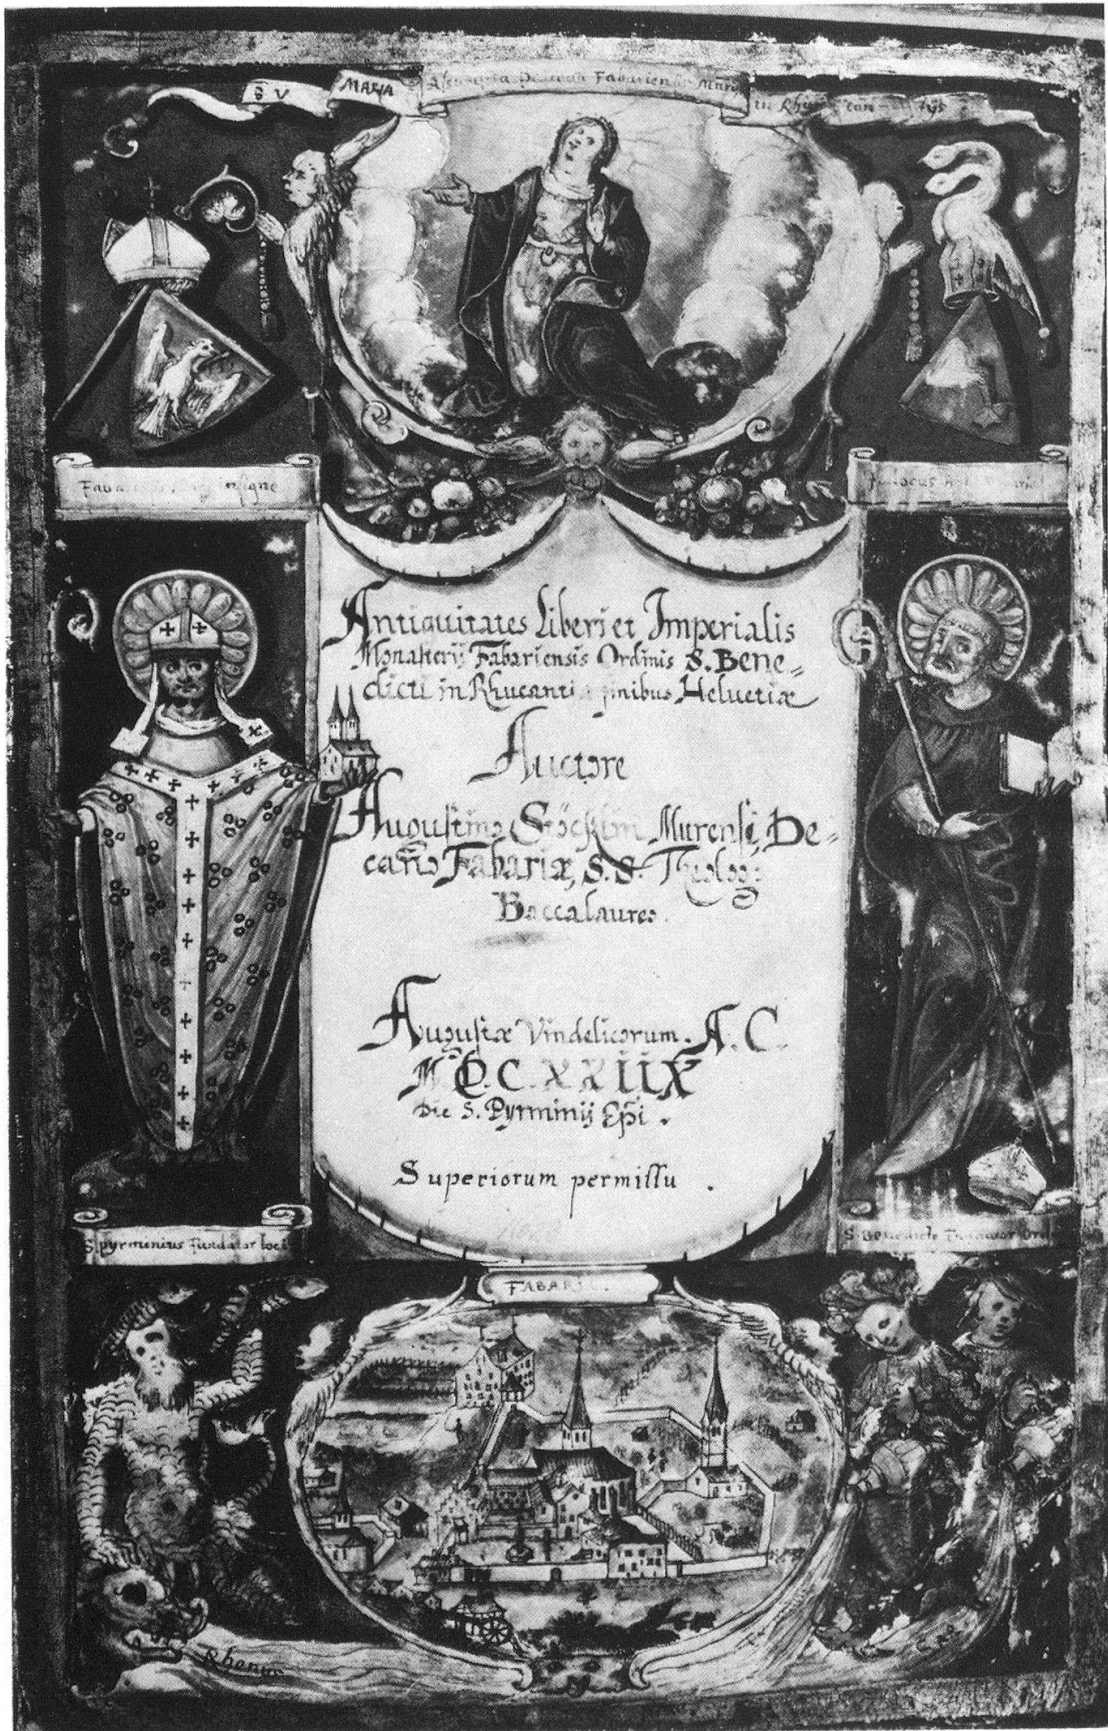 S V
MARIA
Fabariensis
in Rhu
insigne
Antiquitates Liberi et Imperialis
Monasterij Fabariensis Ordinis S. Bene=
dicti in Rhucantia finibus Helvetiæ
Auctore
Augustino Stöcklin Murensi, De=
cano Fabariæ, S.S. Theolog:
Baccalaureo.
Augustæ Vindelicorum. A. C.
M.DC.XXIIX
Die S. Pyrminij Epi.
Superiorum permissu.
S pyrminius Fundator loci
S. Benedict Fundator Ord
FABARI
Rhenus